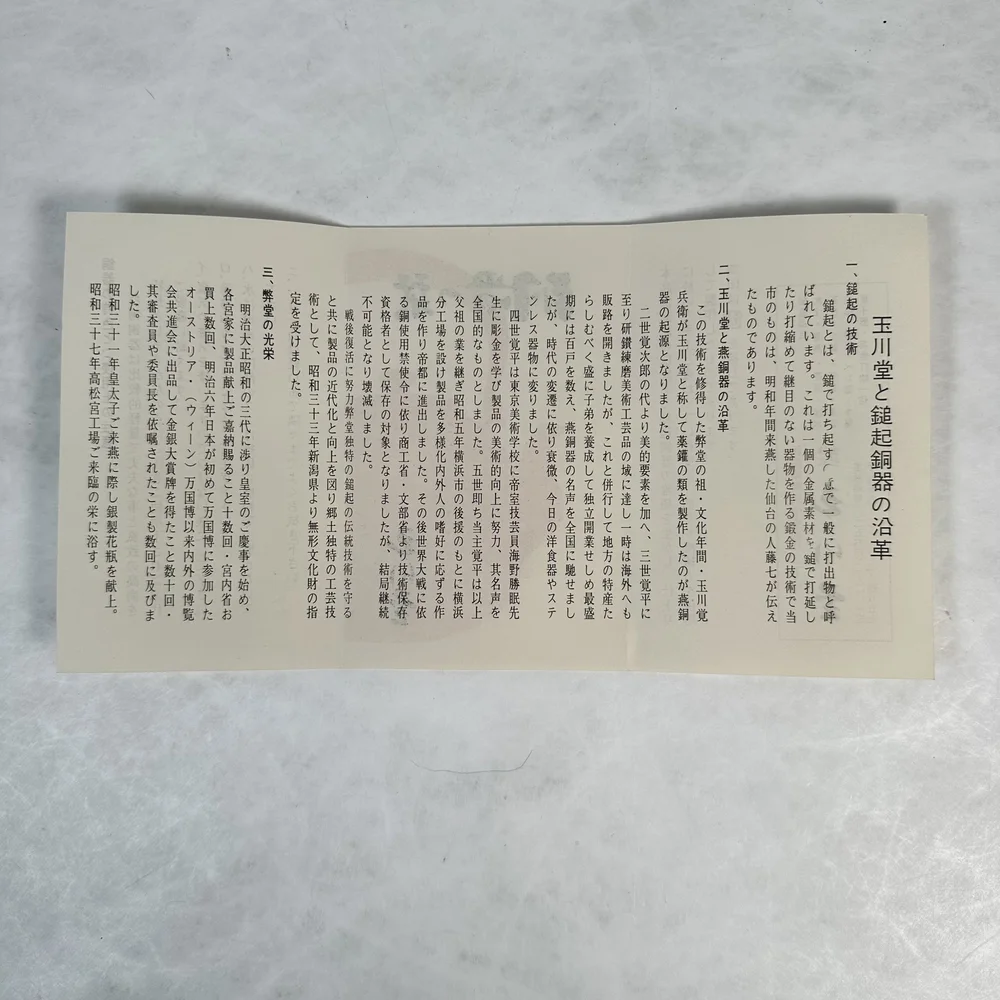 玉川堂と鎚起銅器の沿革
一、鎚起の技術
鎚起とは、鎚で打ち起す 意で一般に打出物と呼
ばれています。これは一個の金属素材を鎚で打延し
たり打縮めて継目のない器物を作る鍛金の技術で当
市のものは、明和年間来燕した仙台の人藤七が伝え
たものであります。
二、玉川堂と燕銅器の沿革
この技術を修得した弊堂の祖・文化年間・玉川覚
兵衛が玉川堂と称して薬鑵の類を製作したのが燕銅
器の起源となりました。
二世覚次郎の代より美的要素を加へ、三世覚平に
至り研鑚練磨美術工芸品の域に達し一時は海外へも
販路を開きましたが、これと併行して地方の特産た
らしむべく盛に子弟を養成して独立開業せしめ最盛
期には百戸を数え、燕銅器の名声を全国に馳せまし
たが、時代の変遷に依り衰微、今日の洋食器やステ
ンレス器物に変りました。
四世覚平は東京美術学校に帝室技芸員海野勝眠先
生に彫金を学び製品の美術的向上に努力、其名声を
全国的なものとしました。五世即ち当主覚平は以上
父祖の業を継ぎ昭和五年横浜市の後援のもとに横浜
分工場を設け製品を多様化内外人の嗜好に応ずる作
品を作り帝都に進出しました。その後世界大戦に依
る銅使用禁使令に依り商工省・文部省より技術保存
資格者として保存の対象となりましたが、結局継続
不可能となり壊滅しました。
戦後復活に努力弊堂独特の鎚起の伝統技術を守る
と共に製品の近代化と向上を図り郷土独特の工芸技
術として、昭和三十三年新潟県より無形文化財の指
定を受けました。
三、弊堂の光栄
明治大正昭和の三代に渉り皇室のご慶事を始め、
各宮家に製品献上ご嘉納賜ること十数回・宮内省お
買上数回、明治六年日本が初めて万国博に参加した
オーストリア・（ウィーン）万国博以来内外の博覧
会共進会に出品して金銀大賞牌を得たこと数十回・
其審査員や委員長を依嘱されたことも数回に及びま
した。
昭和三十一年皇太子ご来燕に際し銀製花瓶を献上。
昭和三十七年高松宮工場ご来臨の栄に浴す。